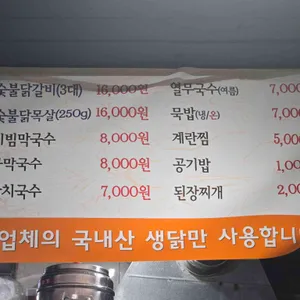 숯불닭갈비(3대) 16,000원
숯불닭목살(250g) 16,000원
비빔막국수 8,000원
막국수 8,000원
치국수 7,000원
열무국수(여름) 7,000
묵밥(냉/온) 7,000
계란찜 5,000
공기밥 1,00
된장찌개 2,00
업체의 국내산 생닭만 사용합니